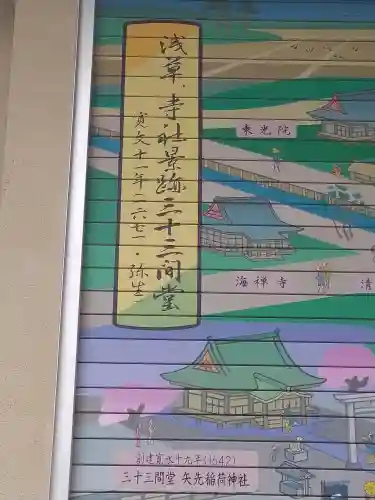 浅草、寺・社景跡三十三間堂
寛文十一年一六七一・弥生
東光院
海禅寺
清
創建寛永十九年(1642)
三十三間堂 矢先稲荷神社